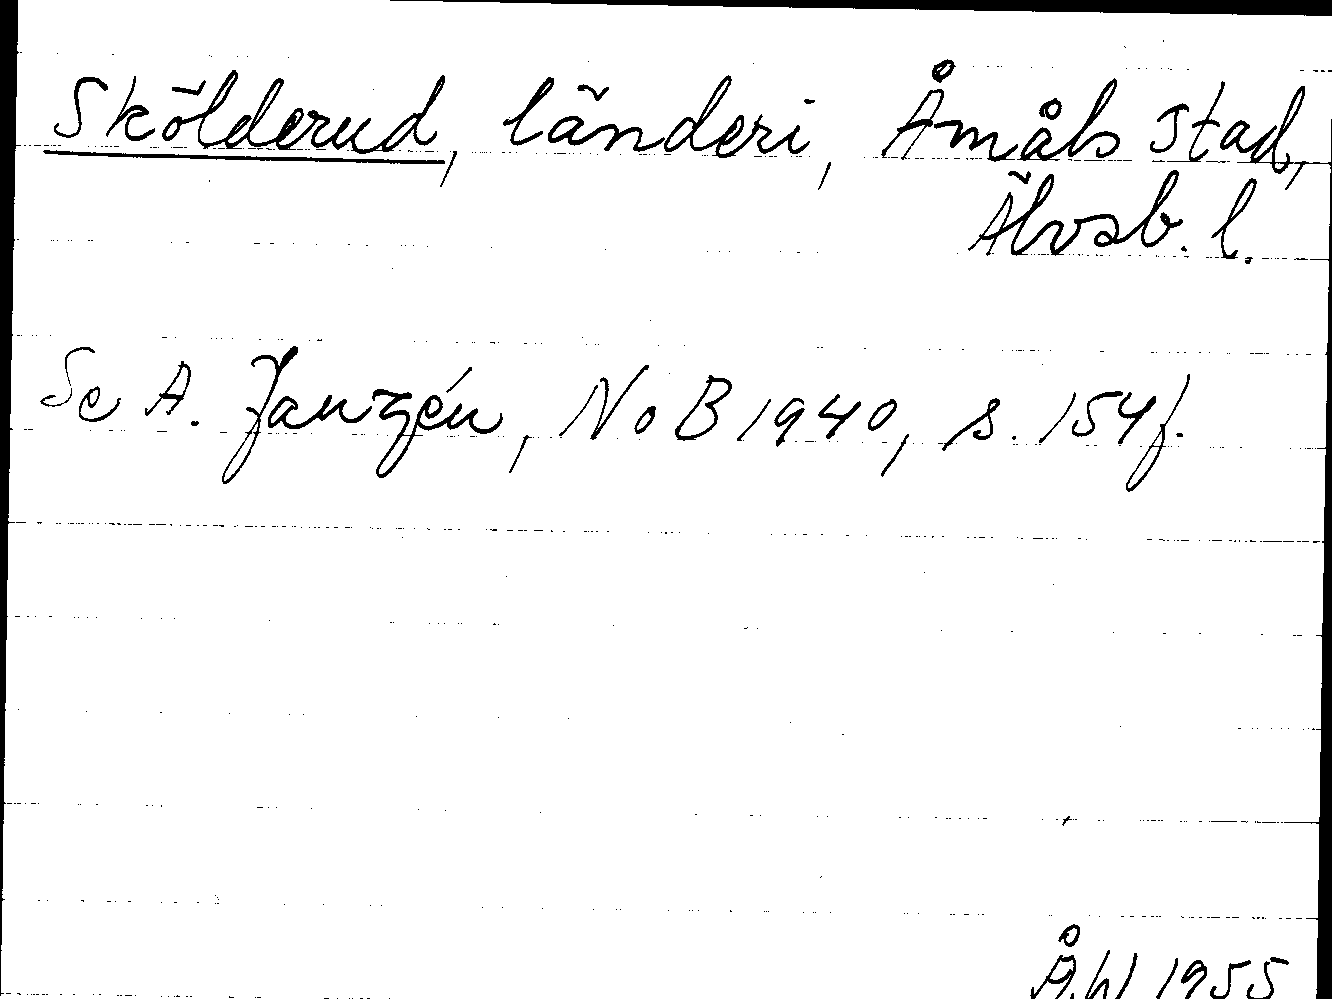 Skölderud, länderi, Åmåls stad,
Älvsb. l.
Se A. Janzén, NoB 1940, s. 154 f.
Å.W 1955